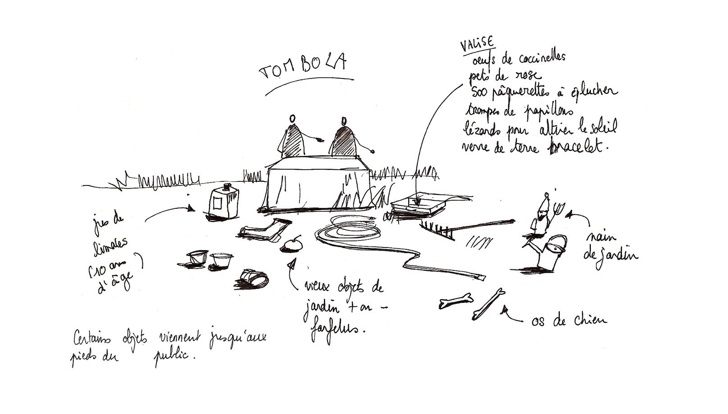 TOMBOLA
VALISE
oeufs de coccinelles
pets de rose
500 pâquerettes à éplucher
trompes de papillons
lézards pour attirer le soleil
verre de terre bracelet.
jus de
limaces
(10 ans
d'âge)
nain
de jardin
vieux objets de
jardin + ou -
farfelus.
os de chien
Certains objets viennent jusqu'aux
pieds du public.